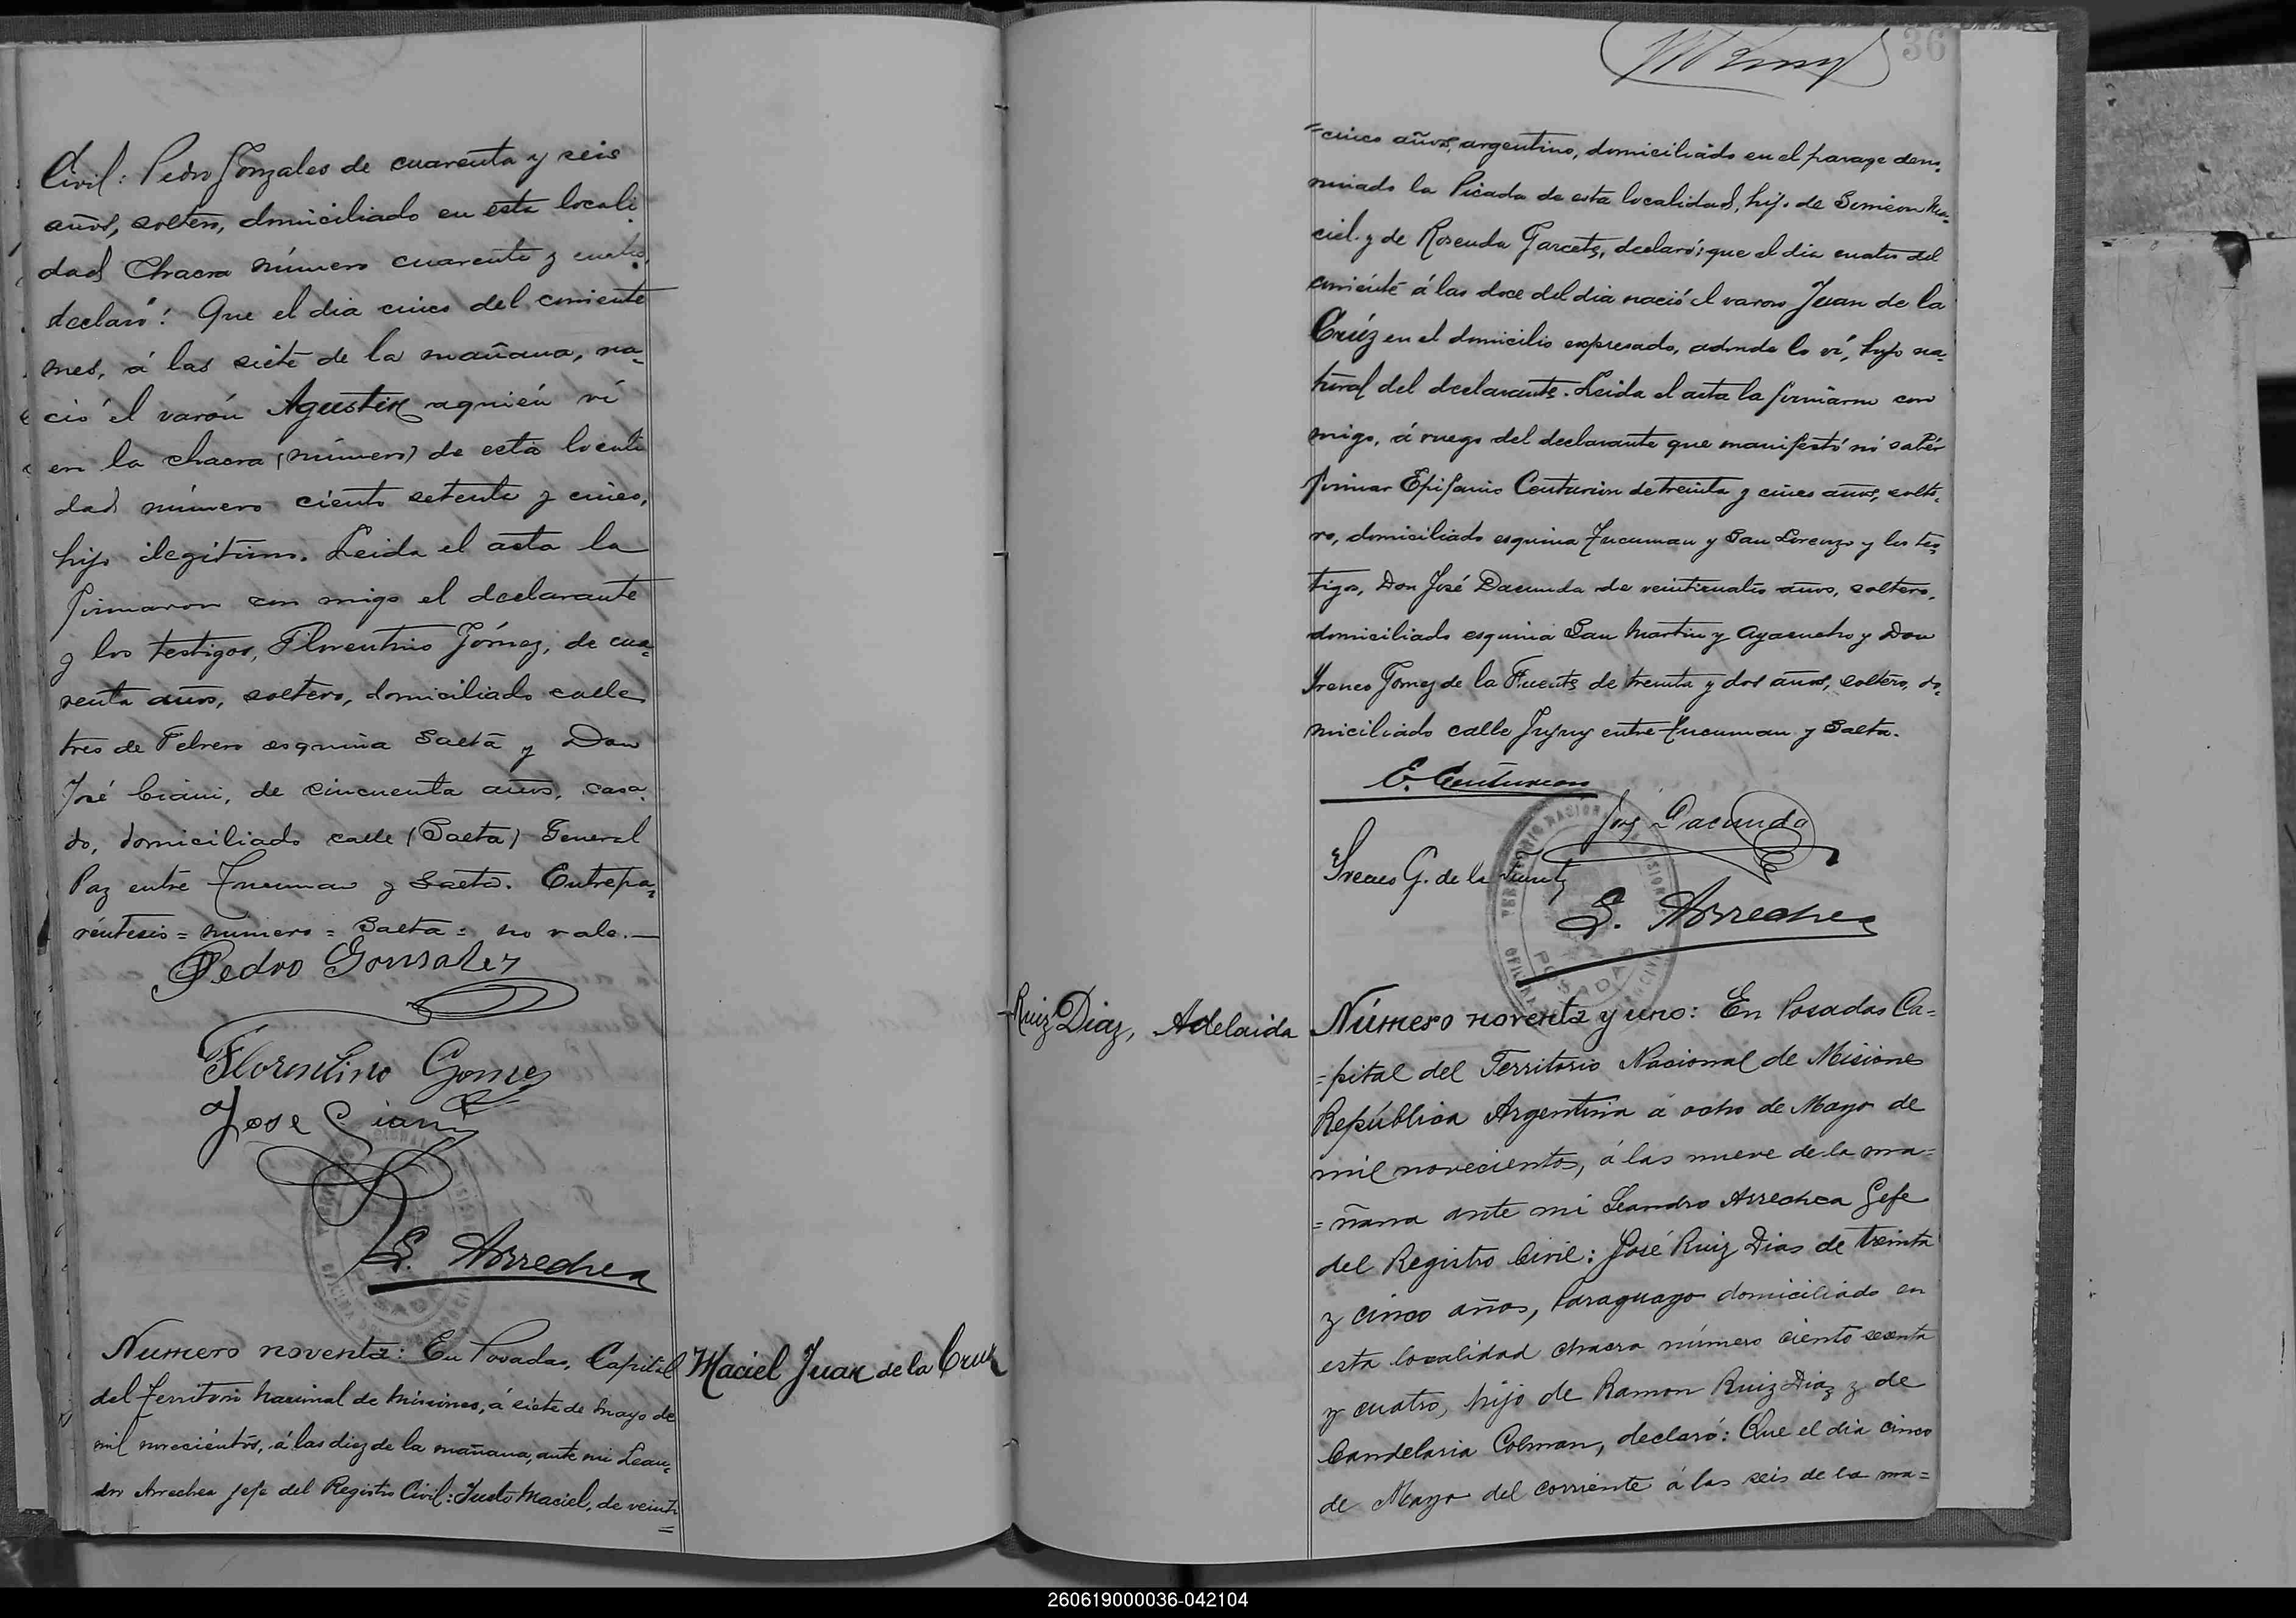 Civil: Pedro Gonzales de cuarenta y seis
años, soltero, domiciliado en esta locali
dad Chacra número cuarenta y cuatro,
declaró: Que el dia cinco del corriente
mes, á las siete de la mañana, na-
ció el varón Agustin aquién ví
en la chacra (número) de esta locali
dad número ciento setenta y cinco,
hijo ilegítimo. Leida el acta la
firmaron con migo el declarante
y los testigos, Florentino Gómez, de cua-
renta años, soltero, domiciliado calle
tres de Febrero esquina Salta y Don
José Ciani, de cincuenta años, casa-
do, domiciliado calle (Salta) General
Paz entre Tucuman y Salta. Entrepa-
réntesis = número = Salta = no vale.—
Pedro Gonsalez
Florentino Gomez
Jose Ciani
L. Arrechea
Numero noventa: En Posadas, Capital
del Territorio Nacional de Misiones, á siete de Mayo de
mil novecientos, á las diez de la mañana, ante mi Lean-
dro Arrechea jefe del Registro Civil: Justo Maciel, de veinti
=
Maciel Juan de la Cruz
36
=cinco años, argentino, domiciliado en el parage deno-
minado la Picada de esta localidad, hijo de Simeon Ma-
ciel y de Rosenda Garcete, declaró; que el dia cuatro del
corriente á las doce del dia nació el varon Juan de la
Crúz en el domicilio expresado, adonde lo ví, hijo na-
tural del declarante. Leida el acta la firmaron con
migo, á ruego del declarante que manifestó nó sabér
firmar Epifanio Centurion de treinta y cinco años, solte-
ro, domiciliado esquina Tucuman y San Lorenzo y los tes-
tigos, Don José Dacunda de veinticuatro años, soltero,
domiciliado esquina San Martin y Ayacucho y Don
Ireneo Gomez de la Fuente de treinta y dos años, soltero, do-
miciliado calle Jujuy entre Tucuman y Salta.
E. Centurion
José Dacunda
Ireneo G. de la Fuente
L. Arrechea
POSADAS
Ruiz Diaz, Adelaida
Número noventa y uno: En Posadas Ca-
=pital del Territorio Nacional de Misiones
República Argentina á ocho de Mayo de
mil novecientos, á las nueve de la ma=
=ñana ante mi Leandro Arrechea Gefe
del Registro Civil: José Ruiz Dias de treinta
y cinco años, Paraguayo domiciliado en
esta localidad chacra número ciento sesenta
y cuatro, hijo de Ramon Ruiz Diaz y de
Candelaria Colman, declaró: Que el dia cinco
de Mayo del corriente á las seis de la ma=
260619000036-042104